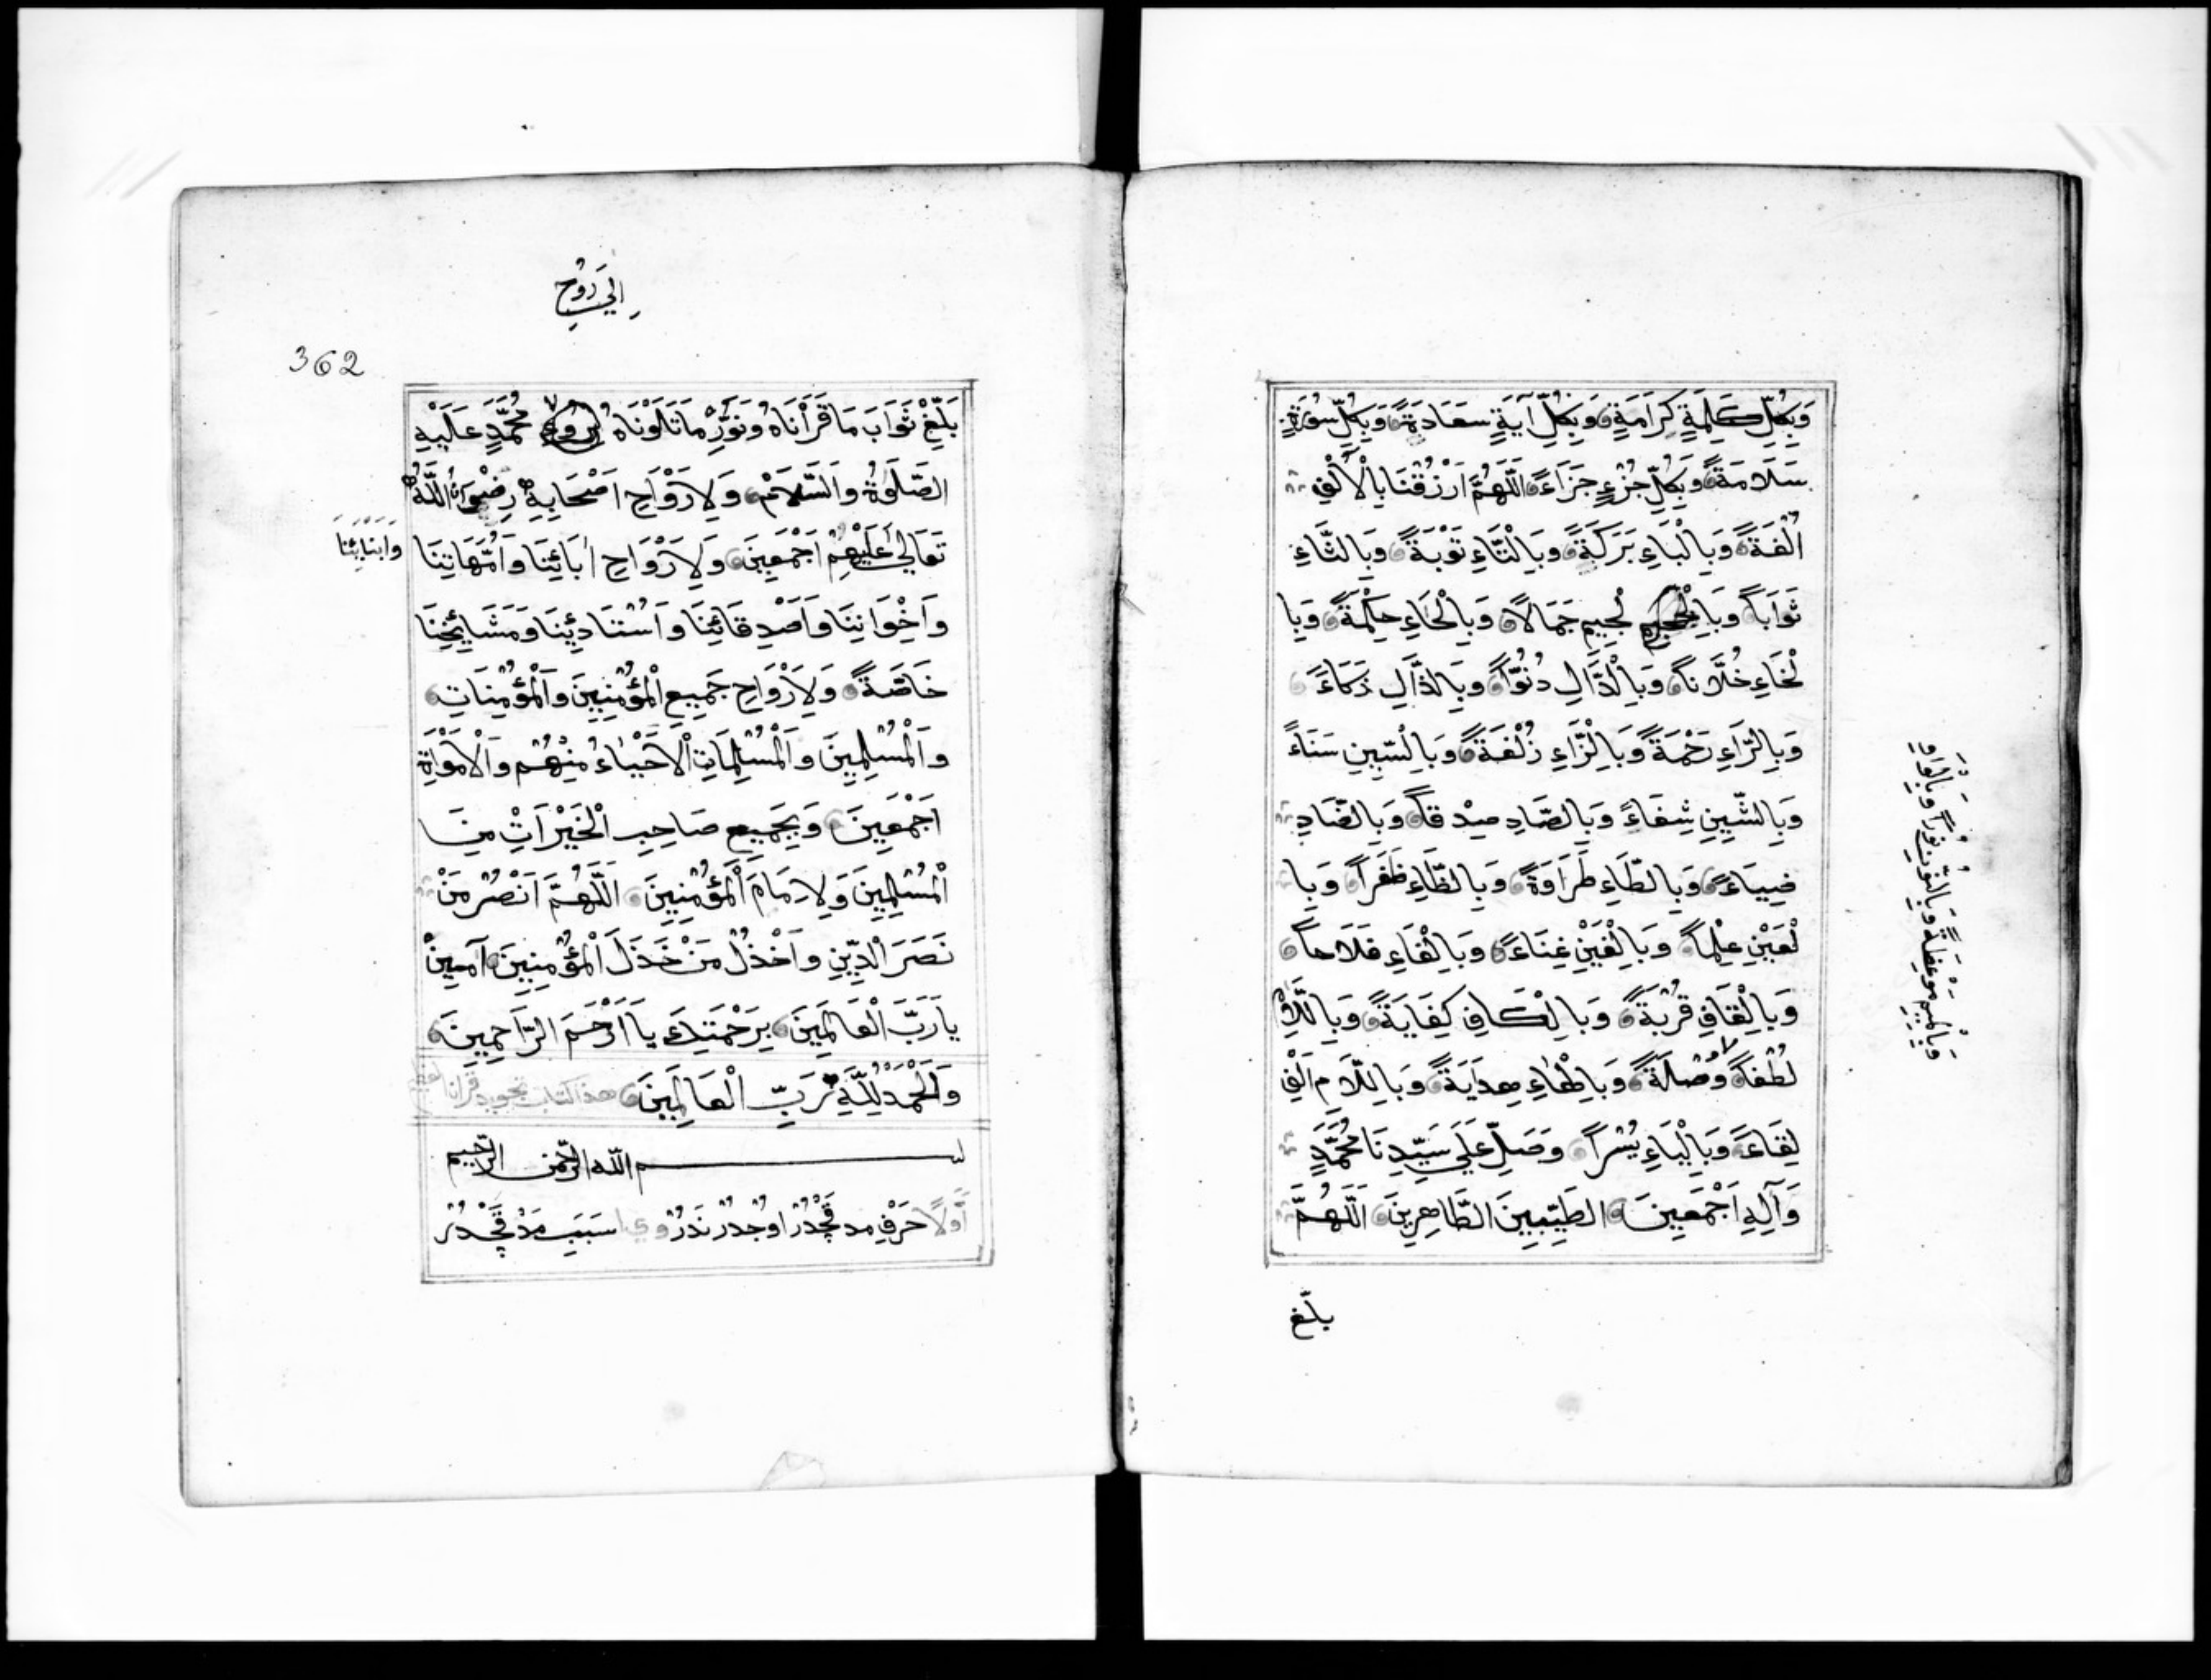 وَبِكُلِّ كَلِمَةٍ كَرَامَةٍ وَبِكُلِّ آيَةٍ سَعَادَةً وَبِكُلِّ سُورَةٍ
سَلَامَةً وَبِكُلِّ جُزْءٍ جَزَاءً اَللّٰهُمَّ ارْزُقْنَا بِالْأَلْفِ
اُلْفَةً وَبِالْبَاءِ بَرَكَةً وَبِالْتَّاءِ تَوْبَةً وَبِالثَّاءِ
ثَوَاباً وَبِا لْجِيمِ جَمَالاً وَبِالْحَاءِ حِكْمَةً وَبِا
لْخَاءِ خُلَّاناً وَبِالْدَّالِ دُنُوّاً وَبِالذَّالِ ذَكَاءً
وَبِالرَّاءِ رَحْمَةً وَبِالْزَّاءِ زُلْفَةً وَبِالْسِّينِ سَنَاءً
وَبِالشِّينِ شِفَاءً وَبِالصَّادِ صِدْقاً وَبِالضَّادِ
ضِيَاءً وَبِالطَّاءِ طَرَاوَةً وَبِالظَّاءِ ظَفَراً وَبِا
لْعَيْنِ عِلْماً وَبِالْغَيْنِ غِنَاءً وَبِالْفَاءِ فَلَاحاً
وَبِالْقَافِ قُرْبَةً وَبِالْكَافِ كِفَايَةً وَبِاللَّامِ
لُطْفاً وُصْلَةً وَبِالْهَاءِ هِدَايَةً وَبِاللَّامِ اَلِفْ
لِقَاءً وَبِالْيَاءِ يُسْراً وَصَلِّ عَلَى سَيِّدِنَا مُحَمَّدٍ
وَآلِهِ اَجْمَعِينَ الطَّيِّبِينَ الطَّاهِرِينَ اَللّٰهُمَّ
وَبِالْمِيمِ مَوْعِظَةً وَبِالنُّونِ نُوراً وَبِالْوَاوِ
بلّغ
اِلَى رُوحِ
362
بَلِّغْ ثَوَابَ مَا قَرَأْنَاهُ وَنَوِّرْ مَا تَلَوْنَاهُ مُحَمَّدٍ عَلَيْهِ
الصَّلٰوةُ وَالسَّلَامْ وَلِاَرْوَاحِ اَصْحَابِهِ رِضْوَانُ اللّٰهِ
تَعَالَى عَلَيْهِمْ اَجْمَعِينَ وَلِاَرْوَاحِ اٰبَائِنَا وَاُمَّهَاتِنَا
وَاَبْنَائِنَا
وَاَخْوَانِنَا وَاَصْدِقَائِنَا وَاُسْتَادِئِنَا وَمَشَائِخِنَا
خَاصَّةً وَلِاَرْوَاحِ جَمِيعِ الْمُؤْمِنِينَ وَالْمُؤْمِنَاتِ
وَالْمُسْلِمِينَ وَالْمُسْلِمَاتِ اَلْاَحْيَاءُ مِنْهُمْ وَالْاَمْوَاةِ
اَجْمَعِينَ وَبِجَمِيعِ صَاحِبِ الْخَيْرَاتِ مِنَ
الْمُسْلِمِينَ وَلِاِمَامَ الْمُؤْمِنِينَ اَللّٰهُمَّ انْصُرْ مَنْ
نَصَرَ الدِّينِ وَاخْذُلْ مَنْ خَذَلَ الْمُؤْمِنِينَ آمِينْ
يَا رَبَّ الْعَالَمِينَ بِرَحْمَتِكَ يَا اَرْحَمَ الرَّاحِمِينَ
وَالْحَمْدُ لِلّٰهِ رَبِّ الْعَالَمِينَ هذا كتاب تجويد قرآن العظيم
بسم الله الرّحمن الرّحيم
اَوَّلاً حَرْفِ مد قَچْدُرْ اوچْدُرْ نَدُرْ و ي ا سَبَبِ مَدْ قَچْدُرْ